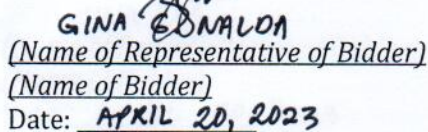 GINA ESNALDA
(Name of Representative of Bidder)
(Name of Bidder)
Date: APRIL 20, 2023